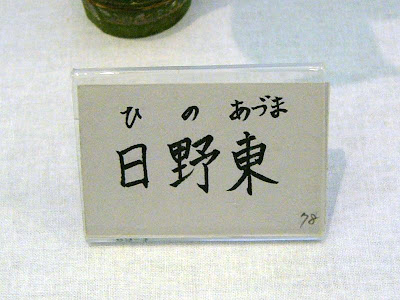 ひ の あづま
日野東
78